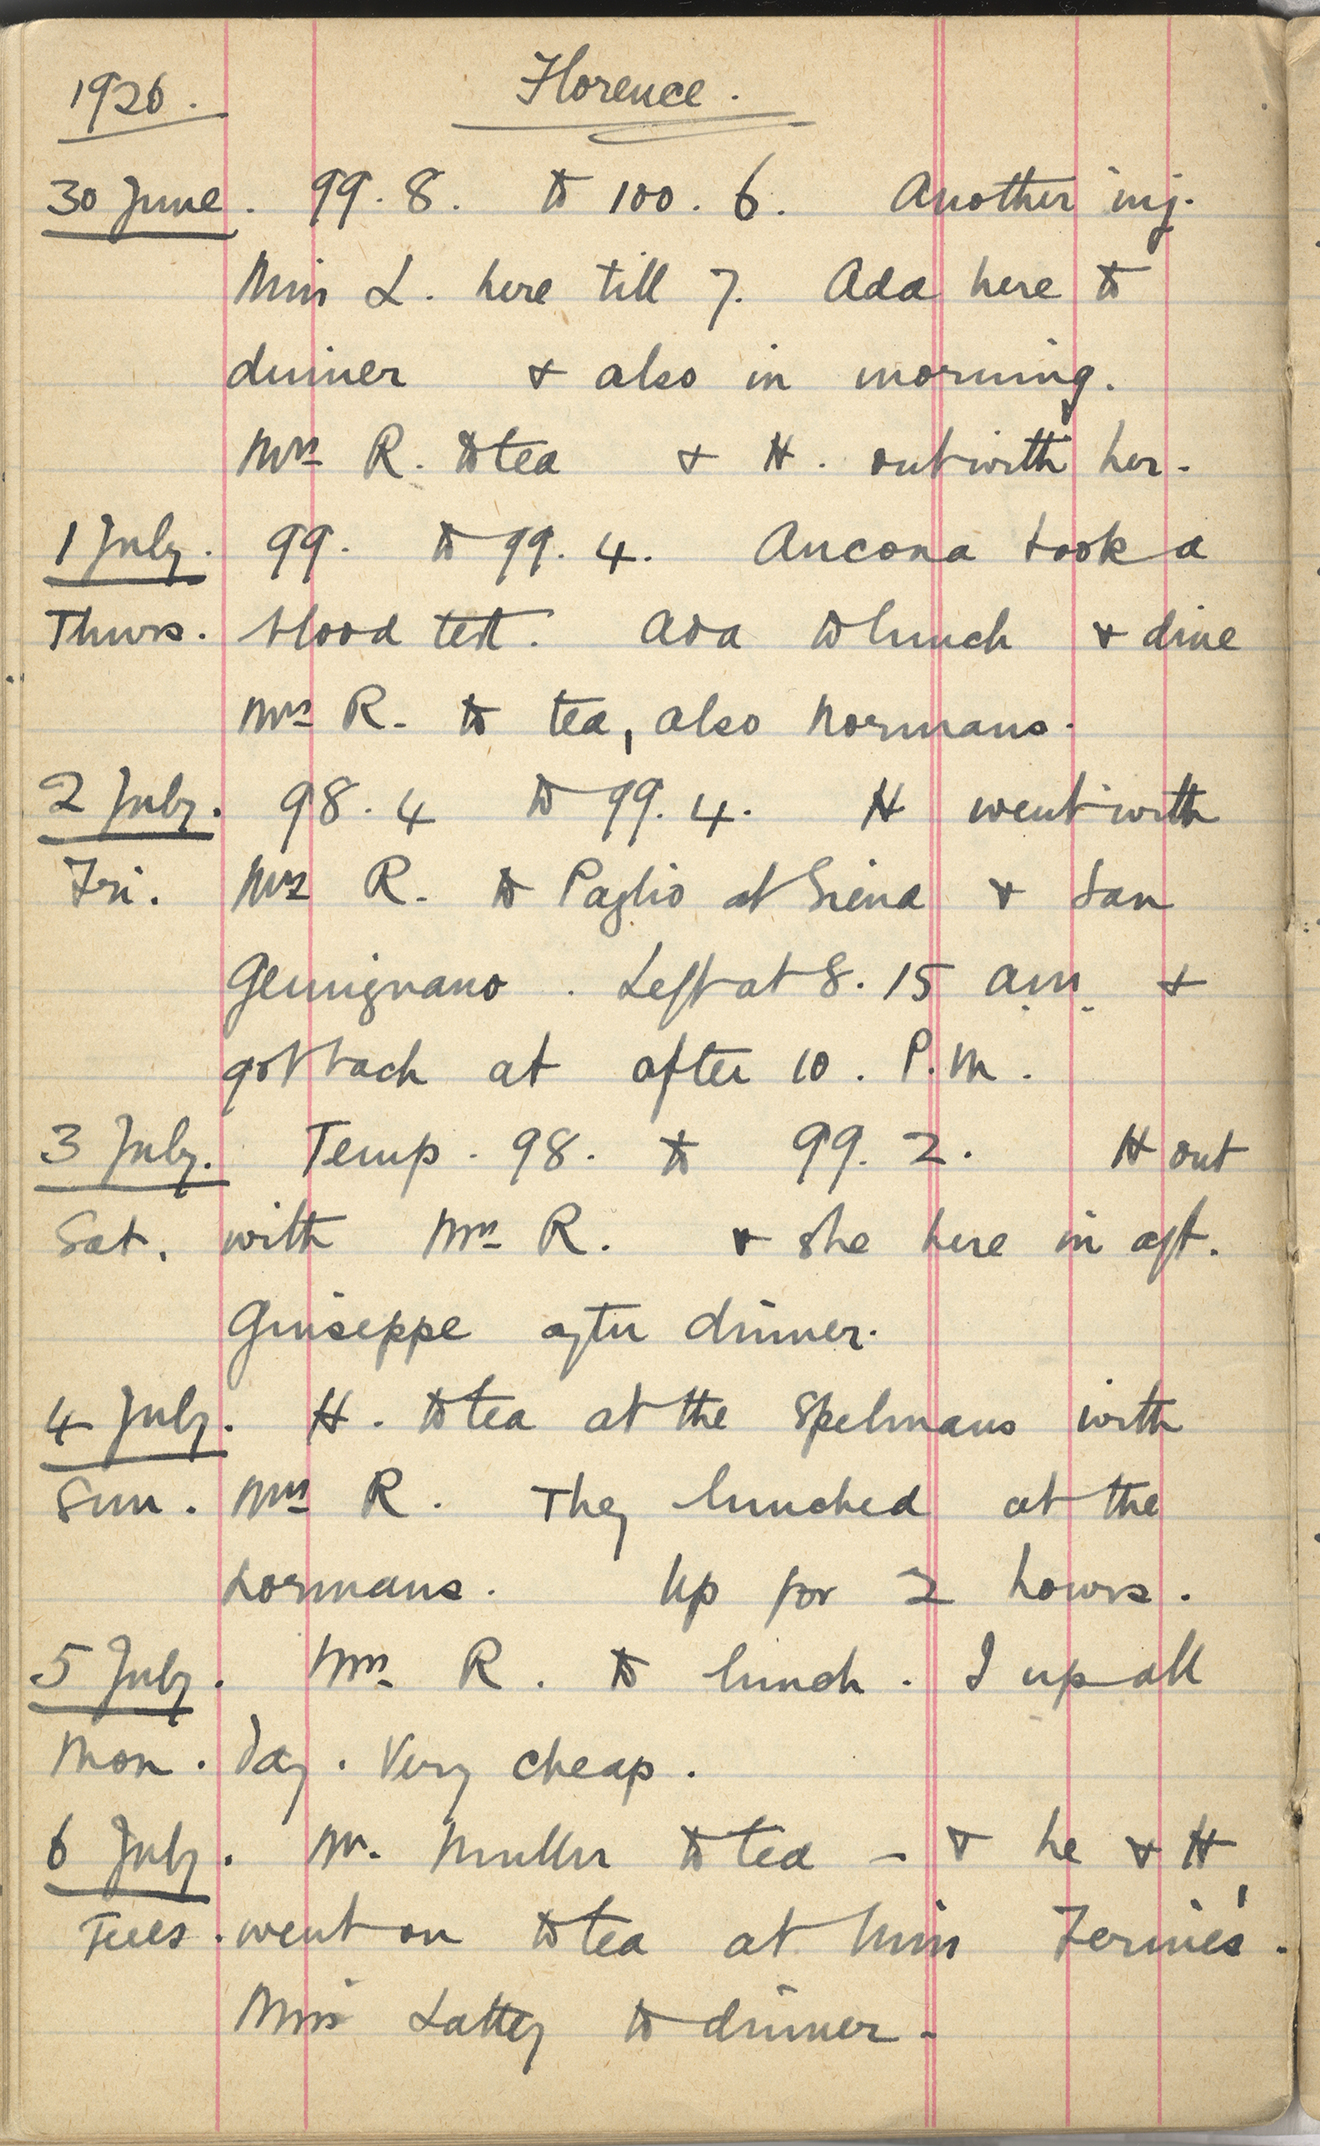 1926. Florence.
30 June. 99.8. to 100.6. Another inj.
Miss L. here till 7. Ada here to
dinner & also in morning.
Mrs R. to tea & H. out with her.
1 July. 99. to 99.4. Ancona took a
Thurs. blood test. Ada to lunch & dine
Mrs R. to tea, also Normans.
2 July. 98.4 to 99.4. H went with
Fri. Mrs R. to Paglio at Siena & San
Gemignano. Left at 8.15 am &
got back at after 10. P.M.
3 July. Temp. 98. to 99.2. H out
Sat. with Mrs R. & she here in aft.
Giuseppe after dinner.
4 July. H. to tea at the Spelmans with
Sun. Mrs R. They lunched at the
Normans. Up for 2 hours.
5 July. Mrs R. to lunch. I up all
Mon. day. Very cheap.
6 July. Mr. Muller to tea – & he & H
Tues. went on to tea at Miss
Miss Lattey to dinner –